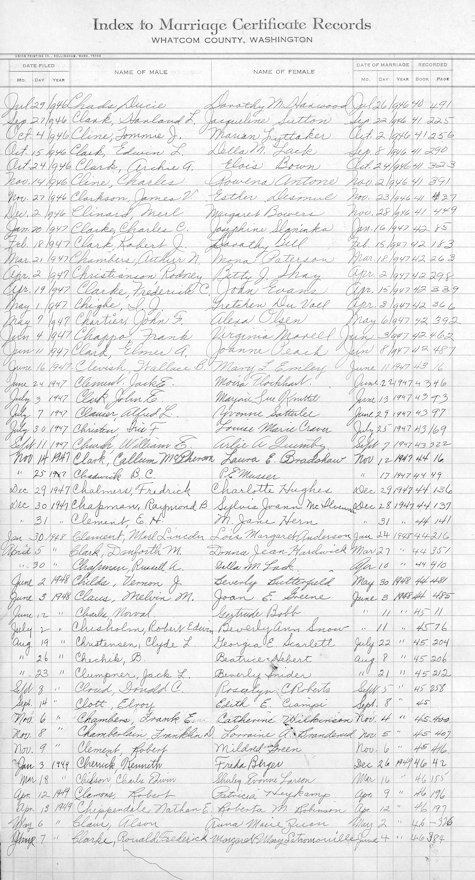 Index to Marriage Certificate Records
WHATCOM COUNTY, WASHINGTON
DATE FILED NAME OF MALE NAME OF FEMALE DATE OF MARRIAGE RECORDED
Mo. DAY YEAR Mo. DAY YEAR BOOK PAGE
Jul 29 1946 Dorothy M. Jul 26 1946 40 491
Sep 27 1946 Clark, L. Jacqueline Sutton Sep 22 1946 41 225
Oct 4 1946 Cline, Tommie J. Marian Oct 2 1946 41 256
Oct 15 1946 Clark, Edwin L. Della M. Sep 8 1946 41 290
Oct 24 1946 Clark, Archie A. Elois Bown Oct 24 1946 41 323
Nov 14 1946 Cline, Charles Rowena Antone Nov 2 1946 41 391
Nov 27 1946 Clarkson, James V. Esther Nov 23 1946 41 437
Dec 2 1946 Clinard, Merl Margaret Bowers Nov 28 1946 41 449
Jan 20 1947 Clarke, Charles C. Josephine Jan 16 1947 42 85
Feb 18 1947 Clark, Robert J. Dorothy Feb 15 1947 42 183
Mar 21 1947 Chambers, Arthur N. Mona Peterson Mar 18 1947 42 263
Apr 2 1947 Christianson Rodney Betty J. Apr 2 1947 42 298
Apr 19 1947 Clarke, Frederick C. Joan Evans Apr 15 1947 42 339
May 1 1947 Gretchen Apr 3 1947 42 366
May 7 1947 Chartier, John F. Alexa Olsen May 6 1947 42 392
Jun 4 1947 Frank Virginia Jun 3 1947 42 462
Jun 11 1947 Clark, Elmer A. Joanne Jun 8 1947 42 487
June 16 1947 Wallace B. Mary L. Emley June 11 1947 43 16
June 24 1947 Clement, Jack E. Mona June 22 1947 43 46
July 3 1947 John E. Marjorie June 13 1947 43 93
July 7 1947 Alfred L. Yvonne June 29 1947 43 97
July 30 1947 Christen, F. Louise Marie July 25 1947 43 169
Sept 11 1947 Church William E. Arlie A. Sept 7 1947 43 322
Nov 14 1947 Clark, Callum McPherson Laura E. Bradshaw Nov 12 1947 44 16
" 25 1947 Chadwick B. C. P. E. Musser " 17 1947 44 49
Dec 29 1947 Chalmers Fredrick Charlotte Hughes Dec 29 1947 44 136
Dec 30 1947 Chapman, Raymond B. Sylvia Joann Dec 28 1947 44 137
" 31 " Clement, E. H. M. Jane Hern " 31 " 44 141
Jan 30 1948 Clement, Lincoln Lois Margaret Anderson Jan 24 1948 44 216
April 5 " Clark, Danforth M. Donna Jean Hardwick Mar 27 " 44 351
" 30 " Chapman Russell A. Della M. Apr 10 " 44 410
June 2 1948 Childs, Vernon J. Beverly Butterfield May 30 1948 44 481
June 3 1948 Claus, Melvin M. Joan E. Greene June 3 1948 44 485
June 12 " Charles Norval Gertrude Bobb " 11 " 45 11
July 2 " Chisholm, Robert Edwin Beverly Ann Snow " 11 " 45 76
Aug 19 " Christensen, Clyde L. Georgia E. Scarlett July 22 " 45 204
" 26 " B. Beatrice Hebert Aug 8 " 45 206
" 23 " Clumpner, Jack L. Beverly Snider " 21 " 45 212
Sept 3 " Cloud, Donald C. Rosalyn C Roberts Sept 5 " 45 258
Sept. 14 " Clott, Elroy Edith E. Ciampi Sept. 8 " 45
Nov. 6 " Chambers, Frank E. Catherine Wilkinson Nov. 4 " 45 400
Nov 8 " Chamberlin, Franklin D. Lorraine A. Nov 5 " 45 407
Nov. 9 " Clement, Robert Mildred Green Nov. 6 " 45 416
Jan 3 1949 Cherrick Kenneth Frida Berger Dec 26 1949 46 42
Mar 18 " Charles Edwin Shirley Evonne Larson Mar 16 " 46 155
Apr. 12 1949 Clamons, Robert Patricia Heykamp Apr. 9 " 46 196
Apr. 13 1949 Chippendale Nathan E. Roberta M. Robinson Apr. 12 " 46 197
May 6 " Clair, Alson Anna Marie May 2 " 46 376
June 7 " Clarke, Ronald Frederick Margaret Mary June 4 " 46 384